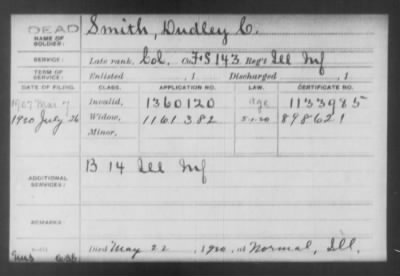 DEAD
NAME OF SOLDIER: Smith, Dudley C.
SERVICE: Late rank, Col. Co. F&S 143 Reg't Ill Inf
TERM OF SERVICE: Enlisted , 1 Discharged , 1
DATE OF FILING. CLASS. APPLICATION NO. LAW. CERTIFICATE NO.
1907 Mar 7 Invalid, 1360120 age 1133985
1920 July 26 Widow, 1161382 5-1-20 898621
Minor,
ADDITIONAL SERVICES: B 14 Ill Inf
REMARKS:
Died May 22, 1920, at Normal, Ill.